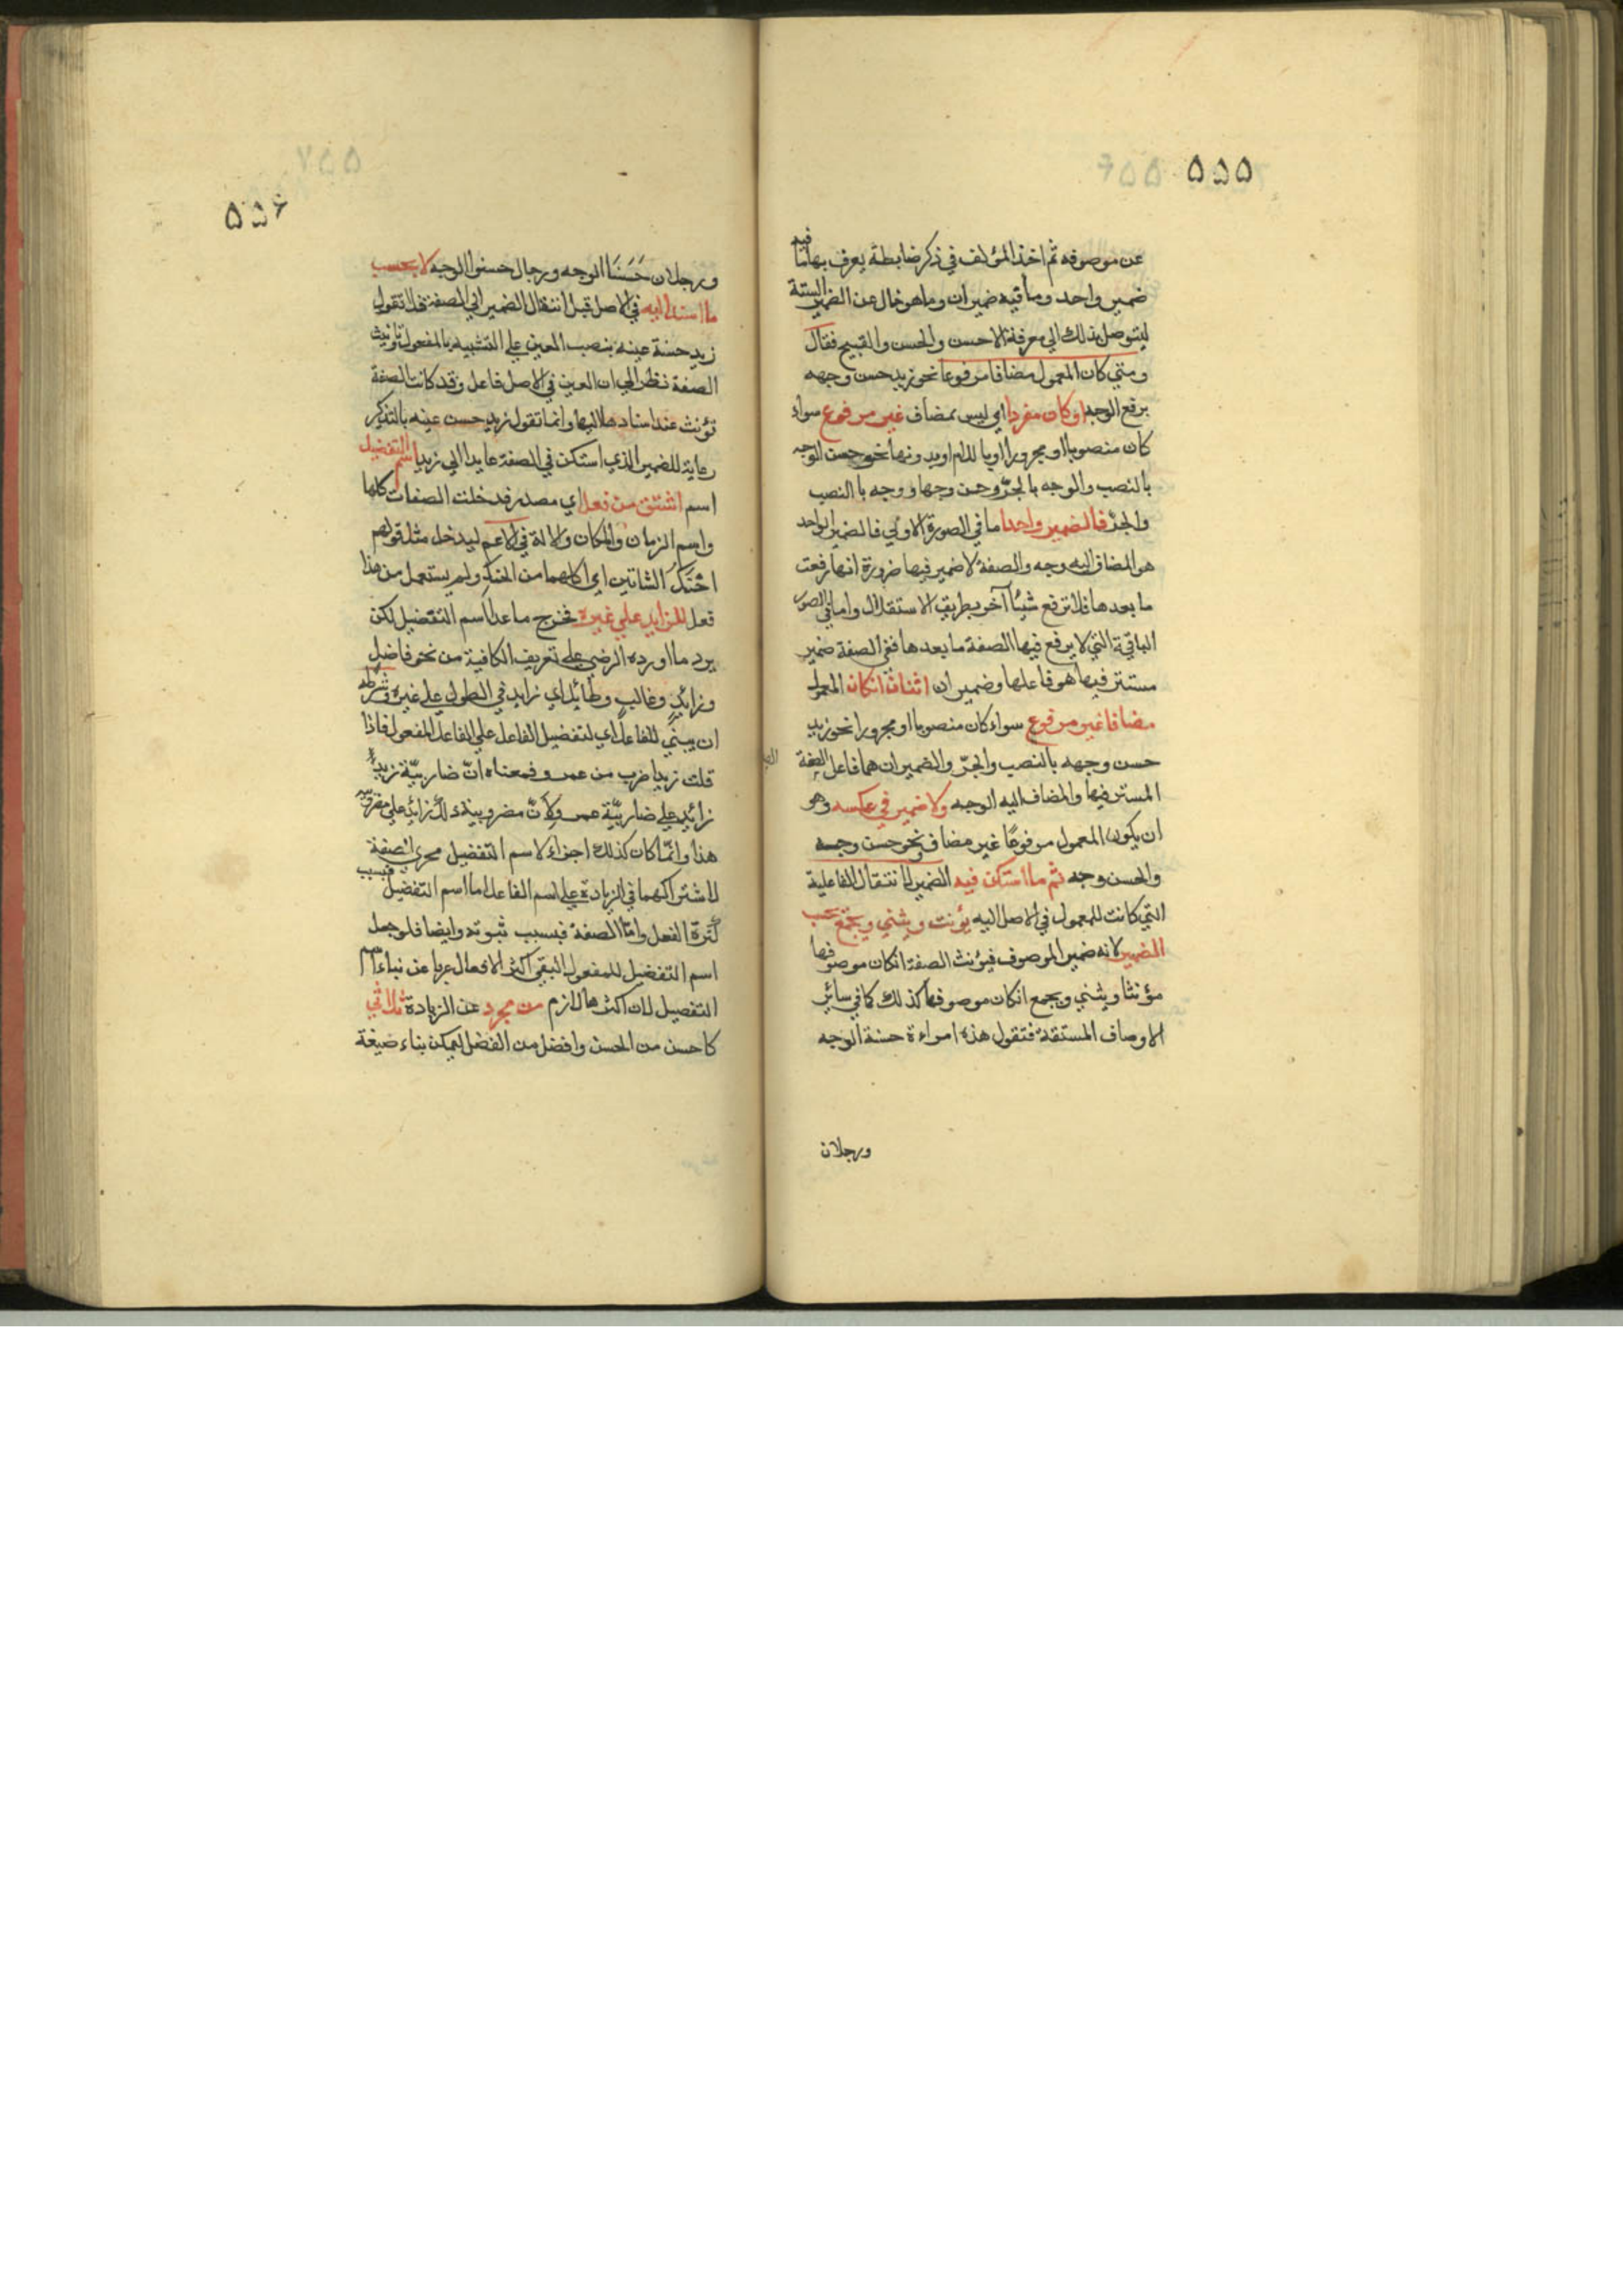 ٥٥٥
عن موصوفه ثم اخذ المؤلف في ذكر ضابطة يعرف بها ما فيه
ضمير واحد وما فيه ضميران وما هو خال عن الضمير البتة
ليتوصل بذلك الي معرفة الاحسن والحسن والقبيح فقال
ومتي كان المعمول مضافا مرفوعا نحو زيد حسن وجهه
برفع الوجه او كان مفردا اي ليس بمضاف غير مرفوع سواء
كان منصوبا او مجرورا او باللام او بدونها نحو حسن الوجه
بالنصب والوجه بالجرّ وحسن وجها ووجه باالنصب
والجرّ فالضمير واحد اما في الصورة الاولي فالضمير الواحد
هو المضاف اليه وجه والصفة لا ضمير فيها ضرورة انها رفعت
ما بعدها فلا ترفع شيئا آخر بطريق الاستقلال واما في الصور
الباقية التي لا يرفع فيها الصفة ما بعدها ففي الصفة ضمير
مستتر فيها هو فاعلها وضميران اثنان انكان المعمول
مضافا غير مرفوع سواء كان منصوبا او مجرورا نحو زيد
حسن وجهه بالنصب والجرّ والضميران هما فاعل الصفة
المستتر فيها والمضاف اليه الوجه ولا ضمير في عكسه وهو
ان يكون المعمول مرفوعًا غير مضاف نحو حسن وجه
والحسن وجه ثم ما استكن فيه الضمير لانتقال الفاعلية
التي كانت للمعمول في الاصل اليه يؤنث ويثني ويجمع بحسب
الضمير لانه ضمير الموصوف فيؤنث الصفة انكان موصوفها
مؤنثا ويثني ويجمع انكان موصوفها كذلك كما في سائر
الاوصاف المستقة فتقول هذه امراءة حسنة الوجه
ورجلان
٥٥٦
ورجلان حَسَنَا الوجه ورجال حسنوا الوجه لا بحسب
ما اسند اليه في الاصل قبل انتقال الضمير الي الصفة فلا تقول
زيد حسنة عينه بنصب العين علي التشبيه بالمفعول تانيث
الصفة نظرا الي ان العين في الاصل فاعل وقد كانت الصفة
تؤنث عند اسنادها اليها وانما تقول زيد حسن عينه بالتذكير
رعاية للضمير الذي استكن في الصفة عايدا الي زيد اسم التفضيل
اسم اشتق من فعل اي مصدر فدخلت الصفات كلها
واسم الزمان والمكان والالة في الاعم ليدخل مثل قولهم
احْنَكُ الشاتين اي آكلهما من الحنك ولم يستعمل من هذا
فعل للزايد علي غيره فخرج ما عدا اسم التفضيل لكن
يرد ما اورده الرضي علي تعريف الكافية من نحو فاضل
وزائدٍ وغالبٍ وطائل اي زايد في الطول علي غيره وشرطه
ان يبنَي للفاعل اي لتفضيل الفاعل علي الفاعل لا المفعول فاذا
قلت زيد اضرب من عمرو فمعناه انّ ضاربيّة زيدٍ
زائد علي ضاربيّة عمرو لا انّ مضروبية ذلك زايد علي مضروبية
هذا وانّما كان كذلك اجراء لاسم التفضيل مجري الصفة
لاشتراكهما في الزيادة علي اسم الفاعل اما اسم التفضيل فبسبب
كثرة الفعل وامّا الصفة فبسبب ثبوته وايضا فلو جعل
اسم التفضيل للمفعول لبقي اكثر الافعال عريا عن بناء اسم
التفضيل لان اكثرها لازم من مجرد عن الزيادة ثلاثي
كاحسن من الحسن وافضل من الفضل ليمكن بناء صيغة